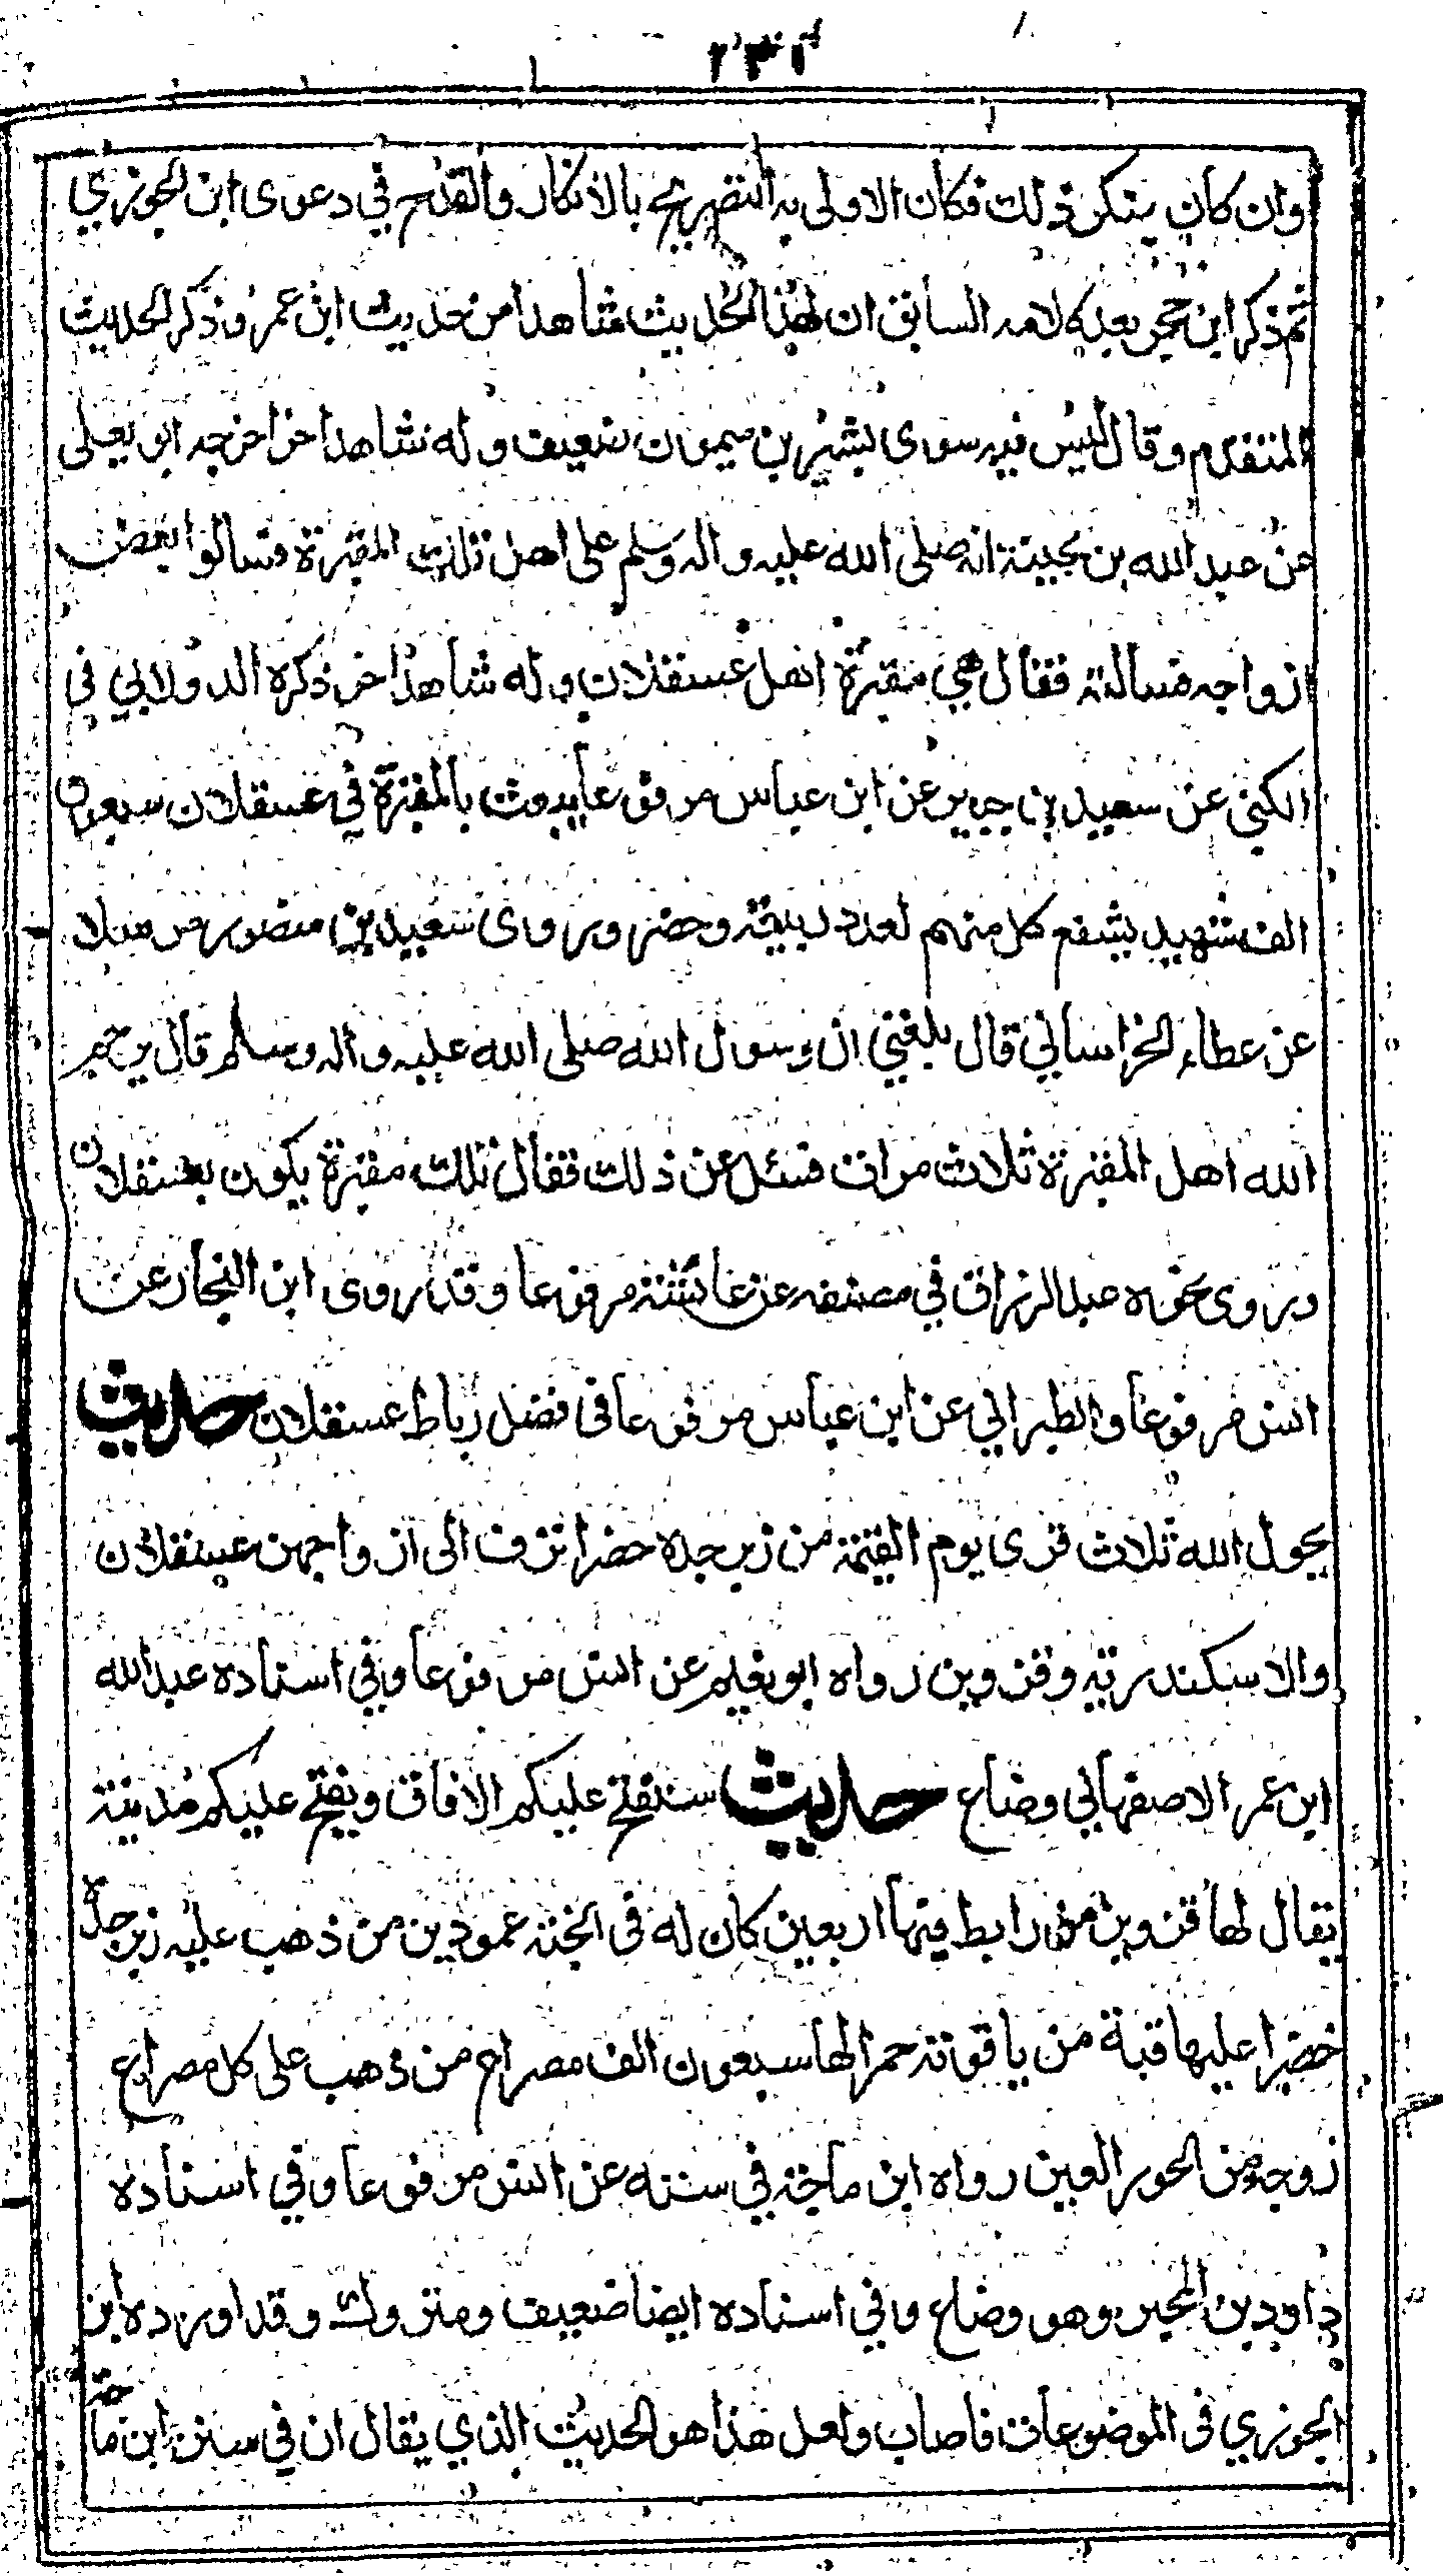 وان كان ينكر ذلك فكان الاولى به التصريح بالانكار والقدح في دعوى ابن الجوزي
ثم ذكر ابن حجر بعد كلامه السابق ان لهذا الحديث شاهدا من حديث ابن عمر وذكر الحديث
المتقدم وقال ليس فيه سوى بشير بن ميمون ضعيف وله شاهد اخر اخرجه ابو يعلى
عن عبد الله بن بحينة انه صلى الله عليه واله وسلم على اهل تلك المقبرة فسالوا بعض
ازواجه فسالته فقال هي مقبرة اهل عسقلان وله شاهد اخر ذكره الدولابي في
الكنى عن سعيد بن جبير عن ابن عباس مرفوعا يبعث بالمقبرة في عسقلان سبعون
الف شهيد يشفع كل منهم لعدد ربيعة ومضر وروى سعيد بن منصور مرسلا
عن عطاء الخراساني قال بلغني ان رسول الله صلى الله عليه واله وسلم قال يرحم
الله اهل المقبرة ثلاث مرات فسئل عن ذلك فقال تلك مقبرة يكون بعسقلان
وروى نحوه عبد الرزاق في مصنفه عن عائشة مرفوعا وقد روى ابن النجار عن
انس مرفوعا والطبراني عن ابن عباس مرفوعا في فضل رباط عسقلان حديث
يحول الله ثلاث قرى يوم القيمة من زبرجدة خضرا تزف الى ازواجهن عسقلان
والاسكندرية وقزوين رواه ابو نعيم عن انس مرفوعا وفي اسناده عبد الله
ابن عمر الاصفهاني وضاع حديث ستفتح عليكم الافاق ويفتح عليكم مدينة
يقال لها قزوين من رابط فيها اربعين كان له في الجنة عمود من ذهب عليه زبرجدة
خضرا عليها قبة من ياقوتة حمرا لها سبعون الف مصراع من ذهب على كل مصراع
زوجة من الحور العين رواه ابن ماجة في سننه عن انس مرفوعا وفي اسناده
داود بن المحبر وهو وضاع وفي اسناده ايضا ضعيف ومتروك وقد اورده ابن
الجوزي في الموضوعات فاصاب ولعل هذا هو الحديث الذي يقال ان في سنن ابن ماجة